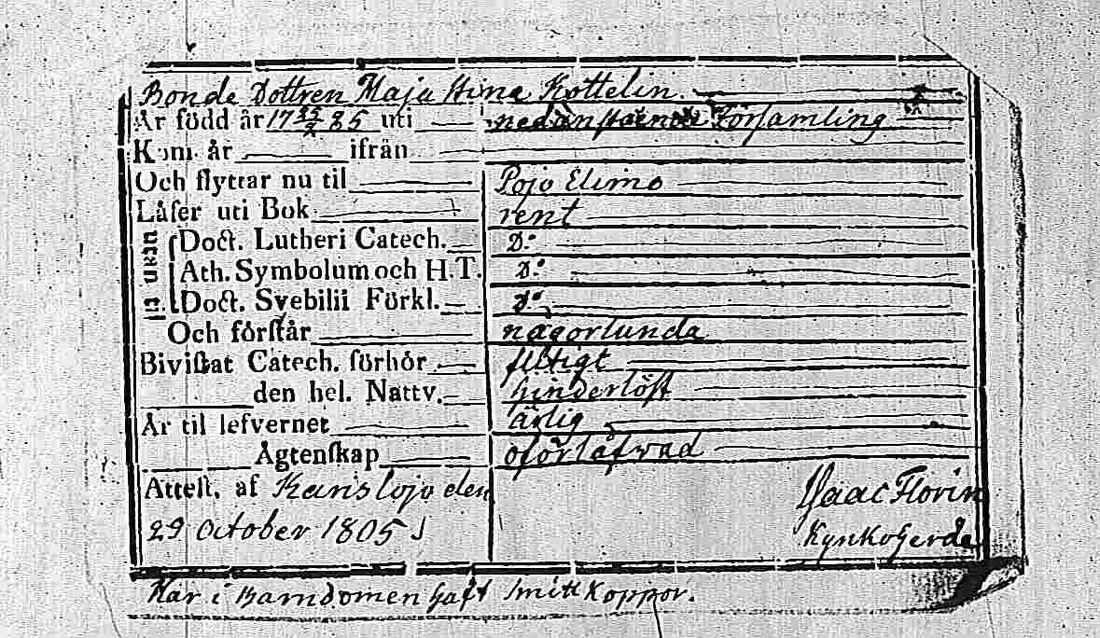 Bonde Dottren Maja Stina Kottelin.
Är född år 17 25/2 85 uti nedanstående Församling
Kom år ifrån
Och flyttar nu til Pojo Elimo
Låſer uti Bok rent
utan Doct. Lutheri Catech. D:o
Ath. Symbolum och H.T. D:o
Doct. Svebilii Förkl. D:o
Och förſtår någorlunda
Biviſtat Catech. förhör flitigt
den hel. Nattv. hinderlöst
Är til lefvernet ärlig
Ägtenſkap oförlåfvad
Atteſt. af Karislojo den Isaac Florin
29 October 1805 Kyrkoherde
Har i Barndomen haft Smittkoppor.